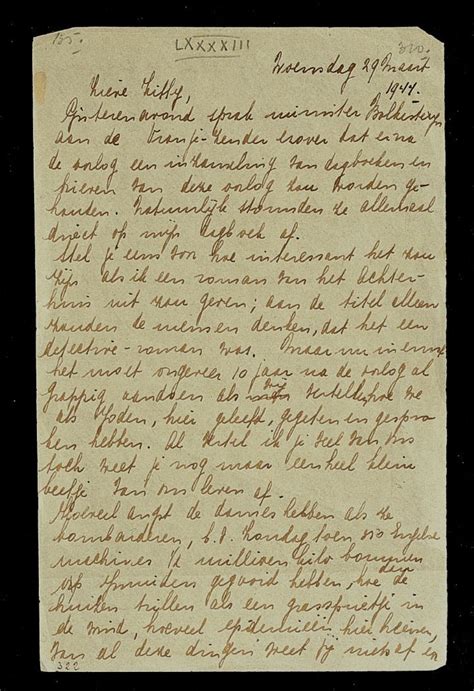 155.
LXXXXIII
320.
Woensdag 29 Maart
1944.
Lieve Kitty,
Gisterenavond sprak minister Bolkesteyn
aan de Oranje-zender erover dat er na
de oorlog een inzameling van dagboeken en
brieven van deze oorlog zou worden ge-
houden. Natuurlijk stormden ze allemaal
direct op mijn dagboek af.
Stel je eens voor hoe interessant het zou
zijn als ik een roman van het Achter-
huis uit zou geven; aan de titel alleen
zouden de mensen denken, dat het een
detective-roman was. Maar nu in ernst
het moet ongeveer 10 jaar na de oorlog al
grappig aandoen als wij vertellen hoe we
als Joden, hier geleefd, gegeten en gespro-
ken hebben. Al vertel ik je veel van ons
toch weet je nog maar een heel klein
beetje van ons leven af.
Hoeveel angst de dames hebben als ze
bombarderen, b.v. Zondag toen 350 Engelse
machines ½ millioen kilo bommen
op Ijmuiden gegooid hebben, hoe dan de
huizen trillen als een grassprietje in
de wind, hoeveel epidemieën hier heersen,
van al deze dingen weet jij niets af en
322